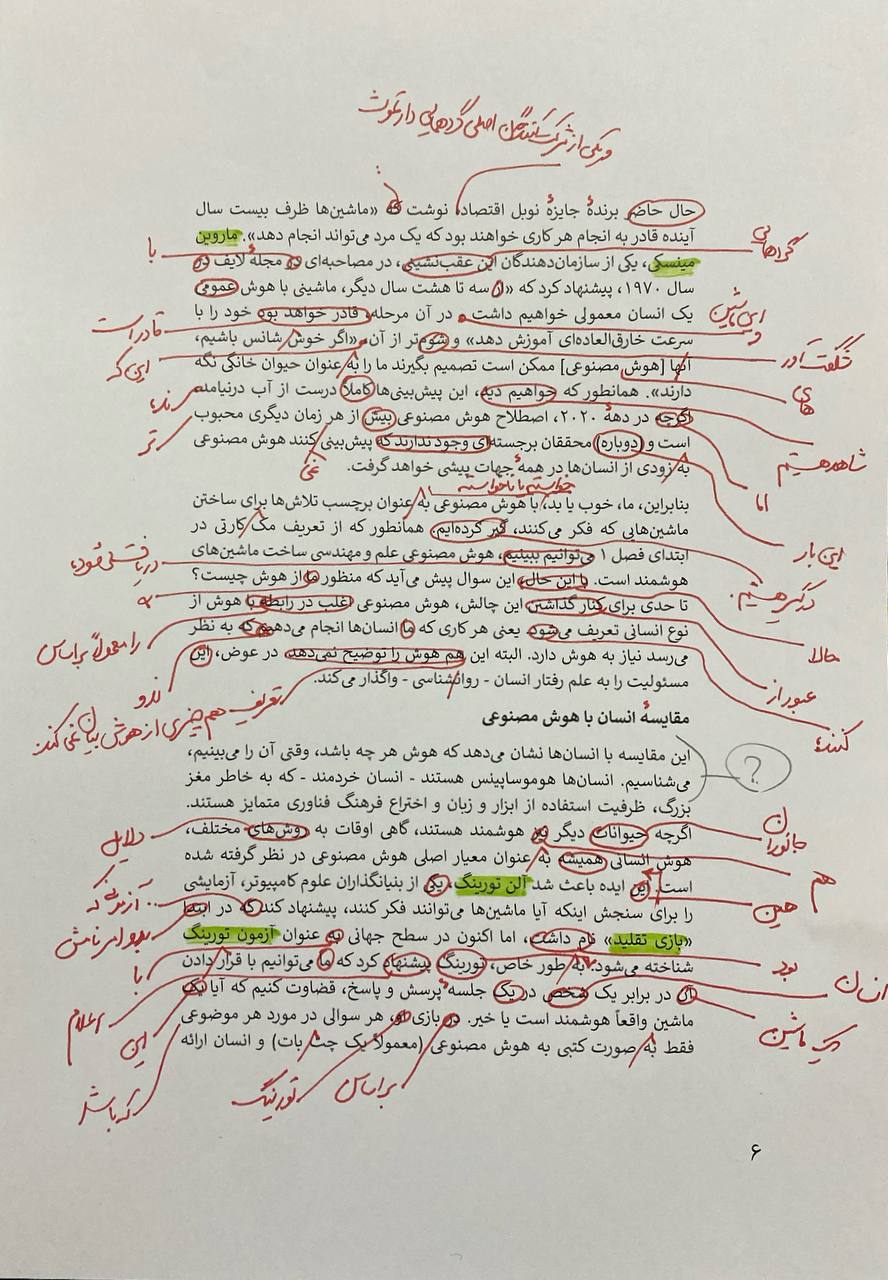 و یکی از شرکت‌کنندگان اصلی گردهمایی دارتموث
حال حاضر برندهٔ جایزهٔ نوبل اقتصاد، نوشت که «ماشین‌ها ظرف بیست سال
آینده قادر به انجام هر کاری خواهند بود که یک مرد می‌تواند انجام دهد». ماروین
گردهمایی
با
مینسکی، یکی از سازمان‌دهندگان این عقب‌نشینی، در مصاحبه‌ای در مجلهٔ لایف در
سال ۱۹۷۰، پیشنهاد کرد که «از سه تا هشت سال دیگر، ماشینی با هوش عمومی
یک انسان معمولی خواهیم داشت. در آن مرحله، قادر خواهد بود خود را با
این ماشین
قادر است
سرعت خارق‌العاده‌ای آموزش دهد» و شوم‌تر از آن، «اگر خوش شانس باشیم،
و
شگفت‌آور
آنها [هوش مصنوعی] ممکن است تصمیم بگیرند ما را به عنوان حیوان خانگی نگه
این که
دارند». همانطور که خواهیم دید، این پیش‌بینی‌ها کاملاً درست از آب درنیامد.
های
اگرچه در دههٔ ۲۰۲۰، اصطلاح هوش مصنوعی بیش از هر زمان دیگری محبوب
است و (دوباره) محققان برجسته‌ای وجود ندارند که پیش‌بینی کنند هوش مصنوعی
تر
شاهد هستیم
به زودی از انسان‌ها در همهٔ جهات پیشی خواهد گرفت.
نمی
اما
خواسته یا ناخواسته
بنابراین، ما، خوب یا بد، با هوش مصنوعی به عنوان برچسب تلاش‌ها برای ساختن
ماشین‌هایی که فکر می‌کنند، گیر کرده‌ایم. همانطور که از تعریف مک کارتی در
این بار
ابتدای فصل ۱ می‌توانیم ببینیم، هوش مصنوعی علم و مهندسی ساخت ماشین‌های
هوشمند است. با این حال، این سوال پیش می‌آید که منظور ما از هوش چیست؟
درگیر هستیم.
تا حدی برای کنار گذاشتن این چالش، هوش مصنوعی اغلب در رابطه با هوش از
نوع انسانی تعریف می‌شود. یعنی هر کاری که ما انسان‌ها انجام می‌دهیم که به نظر
را معمولاً بر اساس
حالا
می‌رسد نیاز به هوش دارد. البته این هم هوش را توضیح نمی‌دهد. در عوض، این
عبور از
مسئولیت را به علم رفتار انسان - روانشناسی - واگذار می‌کند.
تعریف هم چیزی از هوش بیان نمی‌کند.
مقایسهٔ انسان با هوش مصنوعی
کنند؛
این مقایسه با انسان‌ها نشان می‌دهد که هوش هر چه باشد، وقتی آن را می‌بینیم،
؟
می‌شناسیم. انسان‌ها هوموساپینس هستند - انسان خردمند - که به خاطر مغز
بزرگ، ظرفیت استفاده از ابزار و زبان و اختراع فرهنگ فناوری متمایز هستند.
اگرچه حیوانات دیگر نیز هوشمند هستند، گاهی اوقات به روش‌های مختلف،
جانوران
دلایل
هوش انسانی همیشه به عنوان معیار اصلی هوش مصنوعی در نظر گرفته شده
هم
است. این ایده باعث شد آلن تورینگ، یکی از بنیانگذاران علوم کامپیوتر، آزمایشی
همین
آزمونی که
را برای سنجش اینکه آیا ماشین‌ها می‌توانند فکر کنند، پیشنهاد کند که در ابتدا
«بازی تقلید» نام داشت، اما اکنون در سطح جهانی به عنوان آزمون تورینگ
شناخته می‌شود. به طور خاص، تورینگ پیشنهاد کرد که ما می‌توانیم با قرار دادن
بود
با
آن در برابر یک شخص در یک جلسهٔ پرسش و پاسخ، قضاوت کنیم که آیا یک
انسان
اعلام
ماشین واقعاً هوشمند است یا خیر. در بازی او، هر سوالی در مورد هر موضوعی
یک ماشین
این
فقط به صورت کتبی به هوش مصنوعی (معمولاً یک چت بات) و انسان ارائه
بر اساس
تورینگ
که باشد
۶